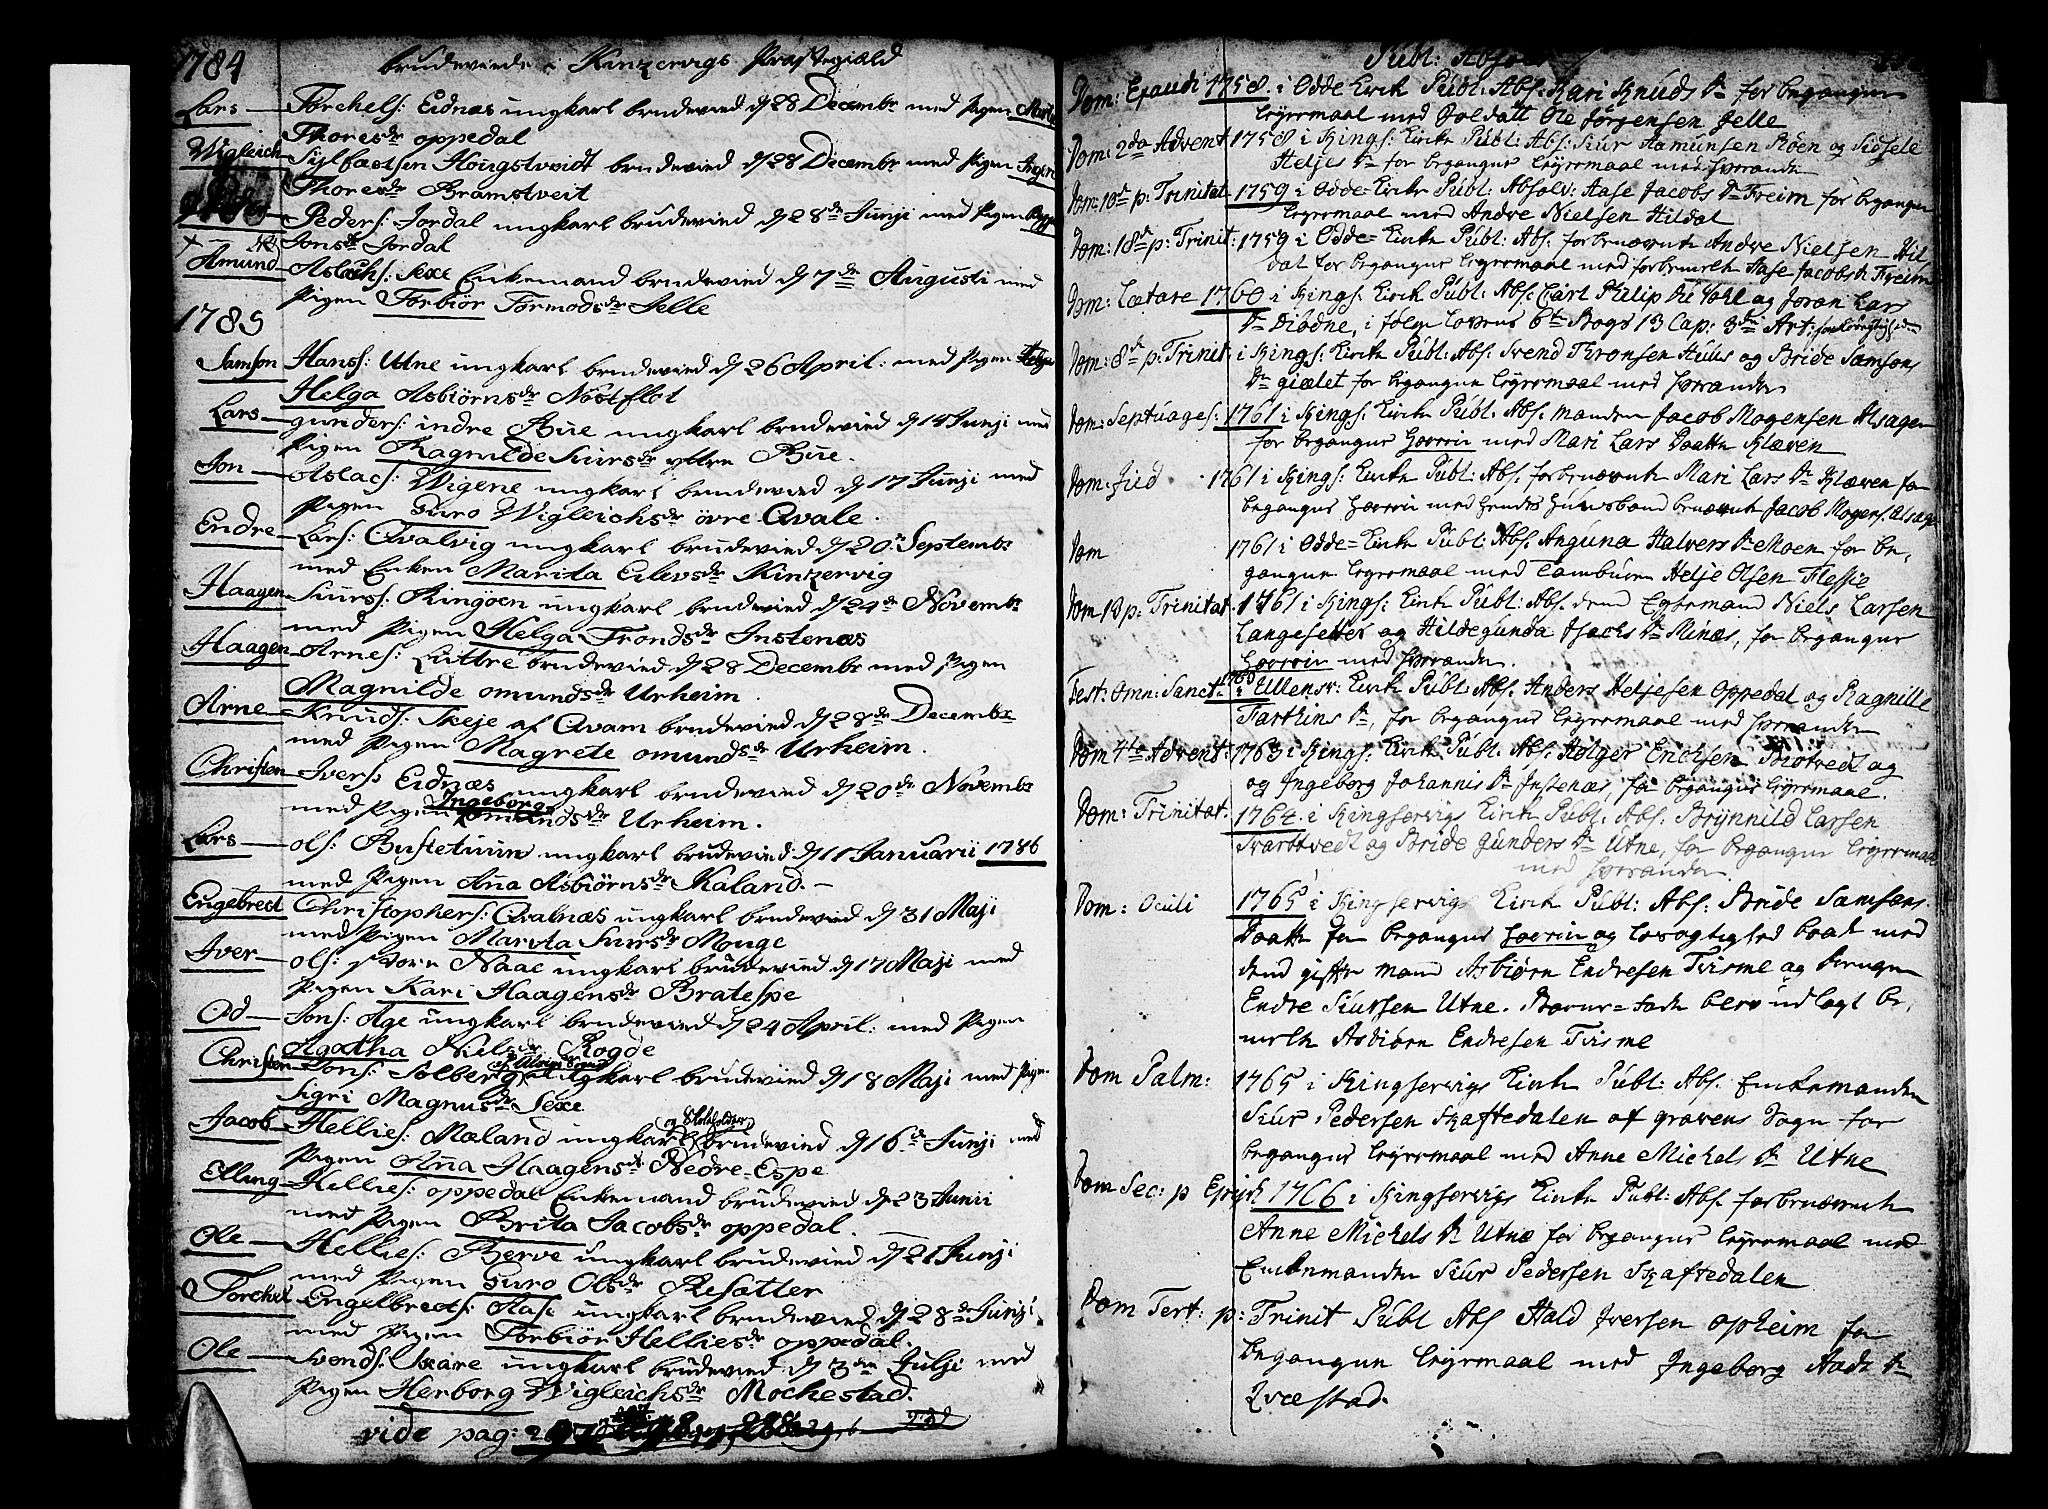 1784 brudeviede i Kinzervigs Præstegield
Lars Torchels: Eidnæs ungkarl brudevied d 28 Decembr med Pigen Marta
Thoresdr oppedal
Wigleich Siglfastsen Hougstveidt brudevied d 28 Decembr med Pigen
Thoresdr Bramstveit
Peders: Jordal ungkarl brudevied d 28de Junji med Pigen
Jonsdr Jordal
Amund Aslachs: Sexe Enkemand brudevied d 7de Augusti med
Pigen Torbiör Tormodsdr Jelle
1785
Samson Hanss: Utne ungkarl brudevied d 26 April: med Pigen
Helga Asbiörnsdr Nöstflot
Lars gunders: indre Bue ungkarl brudevied d 14 Junji med
Pigen Ragnilde Siursdr yttre Bue.
Jon Aslacs: Wigene ungkarl brudevied d 17 Junji med
Pigen Guro Wigleichsdr övre Qvale.
Endre Lars: Qvalvig ungkarl brudevied d 20. Septembr
med Enken Marita Eilevsdr Kinzervig
Haagen Siurs: Ringöen ungkarl brudevied d 24de Novembr
med Pigen Helga Trondsdr Instenæs
Haagen Arnes: Luttre brudevied d 28 Decembr med Pigen
Magnilde omundsdr Urheim
Arne Knuds: Skeje af Qvam brudevied d 28de Decembr
med Pigen Magrete omundsdr Urheim.
Christen Ivers: Eidnæs ungkarl brudevied d 20de Novembr
med Pigen Ingeborg omundsdr Urheim.
Lars ols: Bustetuun ungkarl brudevied d 11 Januarii 1786
med Pigen Aña Asbiörnsdr Kaland.
Engebrect Christophers: Qvalnæs ungkarl brudevied d 31 Maji
med Pigen Marita Siursdr Mouge
Iver ols: Naae ungkarl brudevied d 17 Maji med
Pigen Kari Haagensdr Bratespe
Od Jons: Age ungkarl brudevied d 24 April: med Pigen
Agatha Nielsdr Rogde
Christen Jons: Solberg ungkarl brudevied d 18 Maji med Pigen
Sigri Magnusdr Sexe
Jacob Hellies: Mæland ungkarl brudevied d 16de Junji med
Pigen Aña Haagensdr Nedre-Espe
Elling Hellies: oppedal Enkemand brudevied d 23 Junii
med Pigen Brita Jacobsdr oppedal.
Ole Hellies: Berve ungkarl brudevied d 21 Junji
med Pigen Guro Olsdr Resætter
Torchel Engelbrects: Aase ungkarl brudevied d 28de Junji
med Pigen Torbiör Helliesdr oppedal.
Ole Svends: Skare ungkarl brudevied d 3die Julji med
Pigen Herborg Wigleichsdr Mochestad.
vide pag:
Publ: Absol
Dom: Exaudi 1758. i Odde Kirk Publ: Abs: Kari Knuds Dr for begangen
Leyermaal med Soldatt Ole Jørgensen Jelle
Dom: 2da Advent 1758 i Kings: Kirk Publ: Abs: Siur Aamunsen Røen og Sidsele
Heljes Dr for begangne Leyermaal med hverandre
Dom: 10de p: Trinitat. 1759 i Odde Kirk Publ: Absolv: Aase Jacobs Dr Freim for begangen
Leyermaal med Andre Nielsen Hildal
Dom: 18de p: Trinit: 1759 i Odde Kirk Publ: Abs: forbenævnte Andre Nielsen Hil
dal for begangne Leyermaal med forbemelte Aase Jacobs Dr Freim
Dom: Lætare 1760 i Kings: Kirk Publ: Abs: Carl Philip De Vahl og Joran Lars
Dr Diödne, i følge Lovens 6te Bogs 13 Cap: 3die Art:
Dom: 8de p: Trinit: i Kings: Kirk Publ: Abs: Svend Thronsen Huus og Bride Samsons
Dr giælet for begangne Leyermaal med hverandre
Dom: Septuages: 1761 i Kings: Kirk Publ: Abs: manden Jacob Mogensen Alsager
for begangne Hoererie med Mari Lars Daatter Kleven
Dom: Jud 1761 i Kings: Kirk Publ: Abs. forbenævnte Mari Lars Dr Kleven for
begangne Hoererie med Jacob Mogens: Alsager
Dom 1761 i Odde Kirk Publ: Abs. Anguna Halvers Dr Moen for be-
gangne Leyermaal med Tamburen Helje Olsen Flessie
Dom 13 p: Trinitat. 1761 i Kings: Kirk Publ: Abs. dend Egtemand Niels Larsen
Langesetter og Hildegunda Isachs Dr Minæs, for begangne
Hoererie med hverandre.
Fest: Omn: Sanct: i Ullensv: Kirk Publ: Abs. Anders Heljesen Oppedal og Ragnille
Tarthins Dr, for begangne Leyermaal med hverandre
Dom 4te Advent: 1763 i Kings: Kirk Publ: Abs. Holger Erichsen Biotvedt og
og Ingeborg Johannis Dr Instenæs, for begangne Leyermaal.
Dom: Trinitat. 1764. i Kingservigs Kirk Publ: Abs: Brynnild Larsen
Svarttvedt og Bride Gunders Dr Utne, for begangne Leyermaal
med hverandre
Dom: Oculi 1765 i Kingservigs Kirk Publ: Abs: Bride Samsons
Daatter for begangne Hoererie og Løsagtighed baade med
dend gifte mand Asbiørn Endresen Tvisme og Drengen
Endre Siursen Utne. Barne-fader blev udlagt be-
melte Asbiørn Endresen Tvisme
Dom Palm: 1765 i Kingservigs Kirk Publ: Abs. Enkemanden
Siur Pedersen Skaftedalen af gravens Sogn for
begangne Leyermaal med Anne Michels Dr Utne
Dom Sec: p Epiph 1766 i Kingservigs Kirk Publ: Abs. forbenævnte
Anne Michels Dr Utne for begangne Leyermaal med
Enkemanden Siur Pedersen Skaftedalen
Dom Tert: p: Trinit Publ Abs Hald Iversen opheim for
begangne Leyermaal med Ingeborg Aads Dr
Qvæstad.